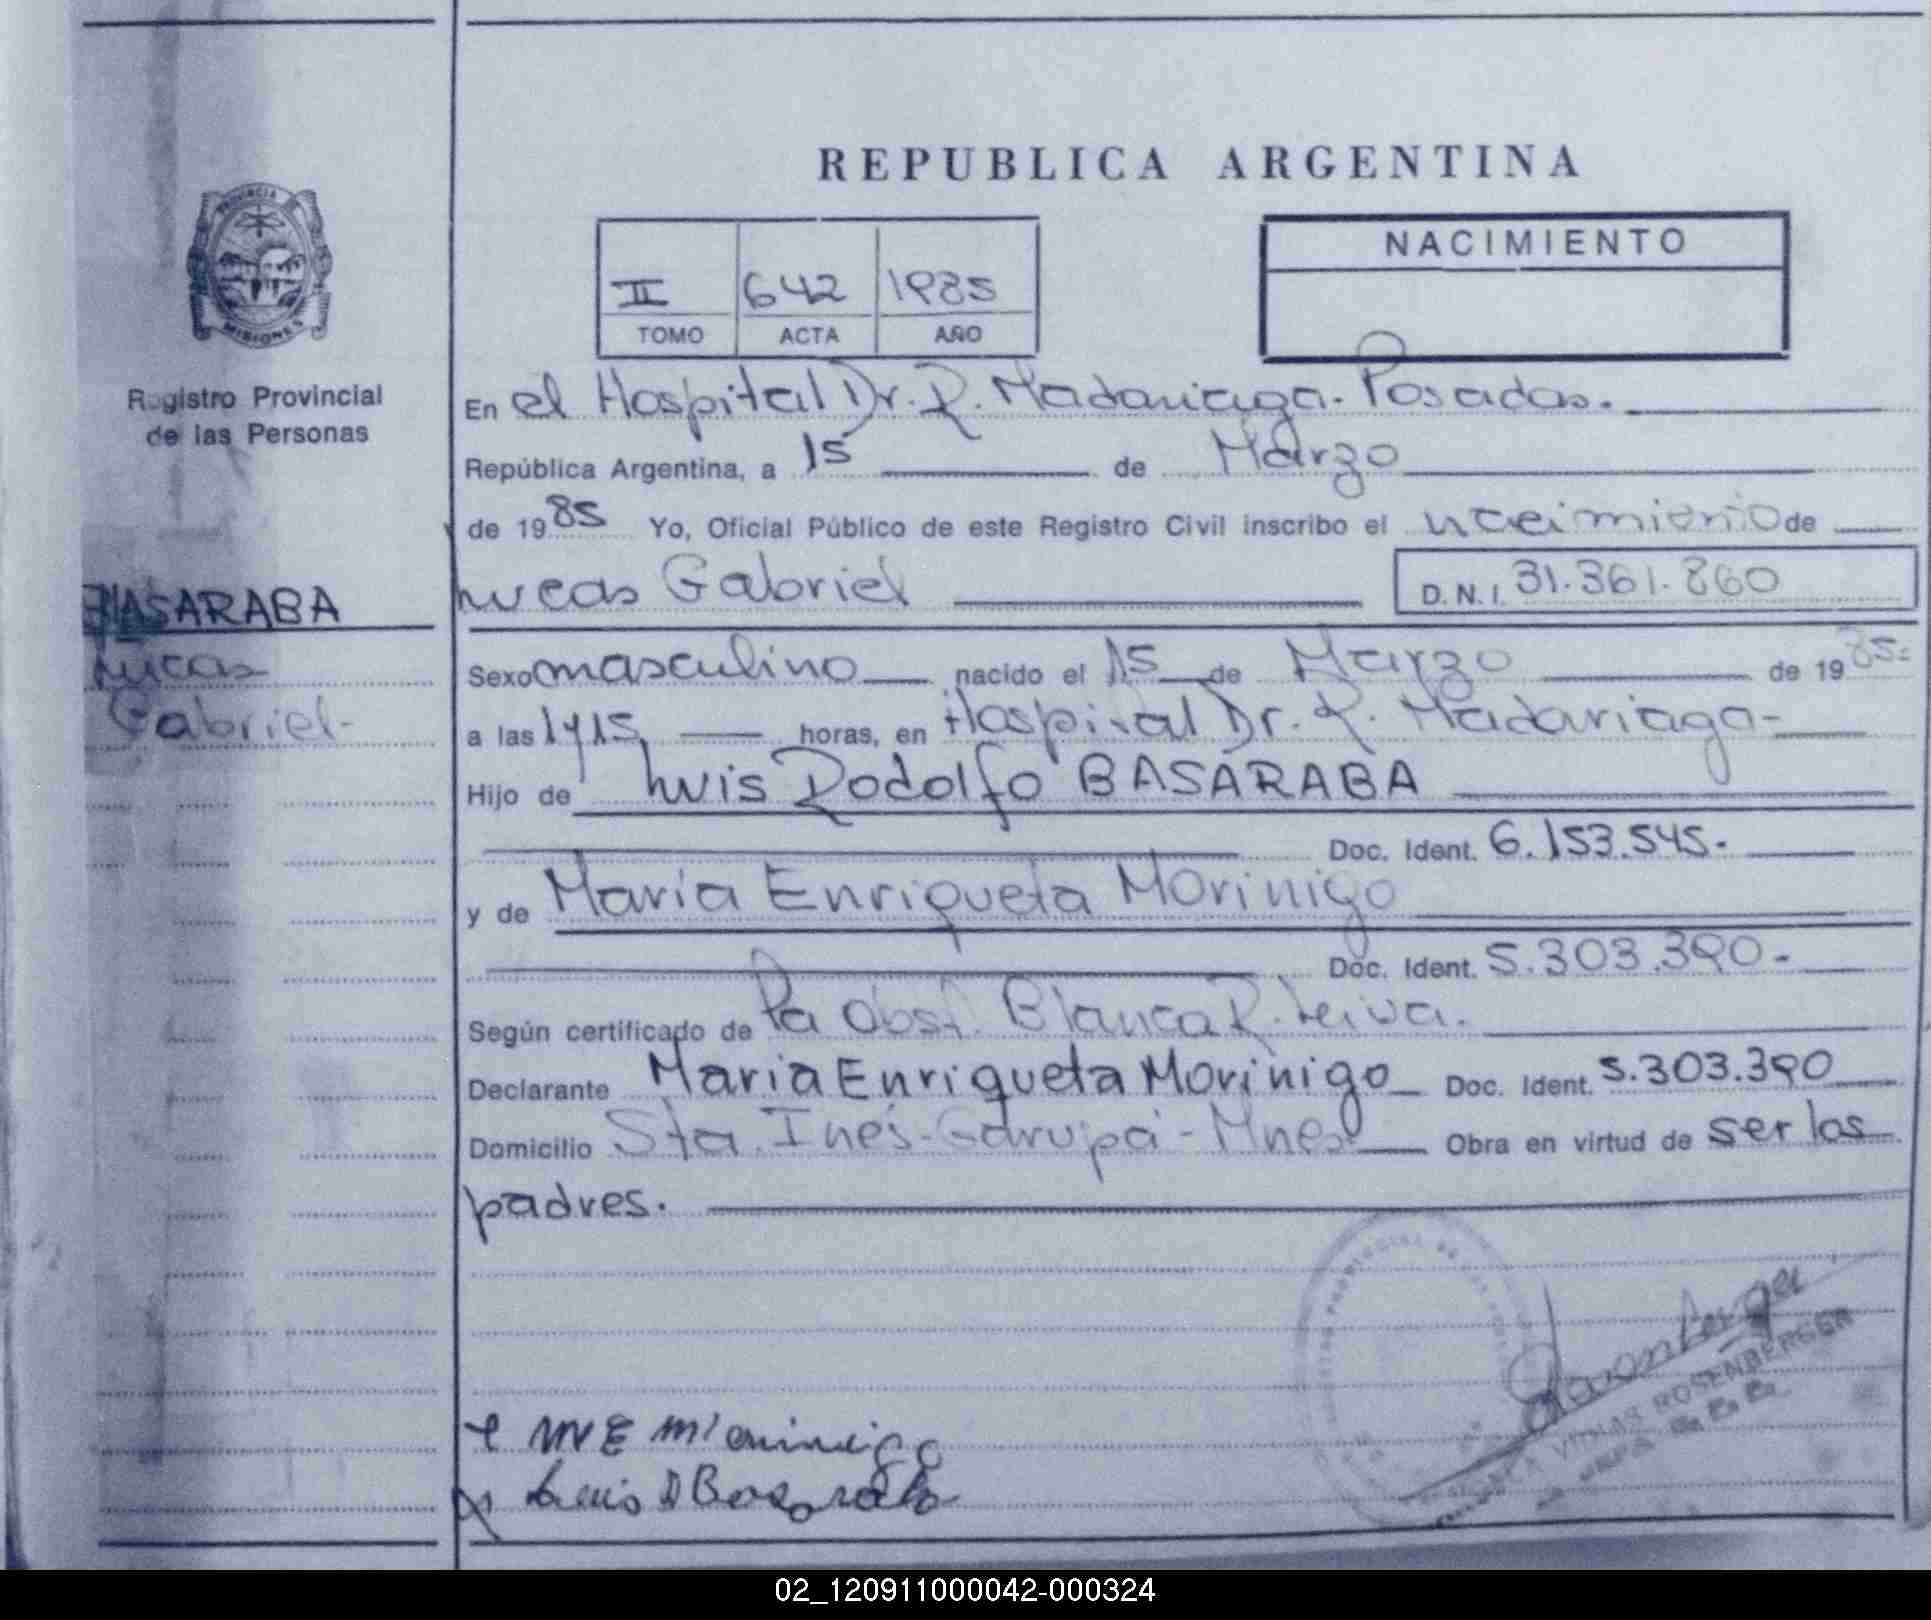 REPUBLICA ARGENTINA
PROVINCIA
MISIONES
Registro Provincial
de las Personas
II 642 1985
TOMO ACTA AÑO
NACIMIENTO
En el Hospital Dr. R. Madariaga. Posadas.
República Argentina, a 15 de Marzo
de 1985 Yo, Oficial Público de este Registro Civil inscribo el nacimiento de
Lucas Gabriel D.N.I. 31.361.860
BASARABA
Lucas
Gabriel-
Sexo masculino nacido el 15 de Marzo de 1985-
a las 1415 horas, en Hospital Dr. R. Madariaga-
Hijo de Luis Rodolfo BASARABA
Doc. Ident. 6.153.545.
y de María Enriqueta Morinigo
Doc. Ident. 5.303.390-
Según certificado de Pa Obst. Blanca R. Leiva.
Declarante Maria Enriqueta Morinigo Doc. Ident. 5.303.390
Domicilio Sta. Inés-Garupá-Mnes Obra en virtud de ser los
padres.
VIÑAS ROSENBERGER
M E Morinigo
Luis R Basaraba
02_120911000042-000324